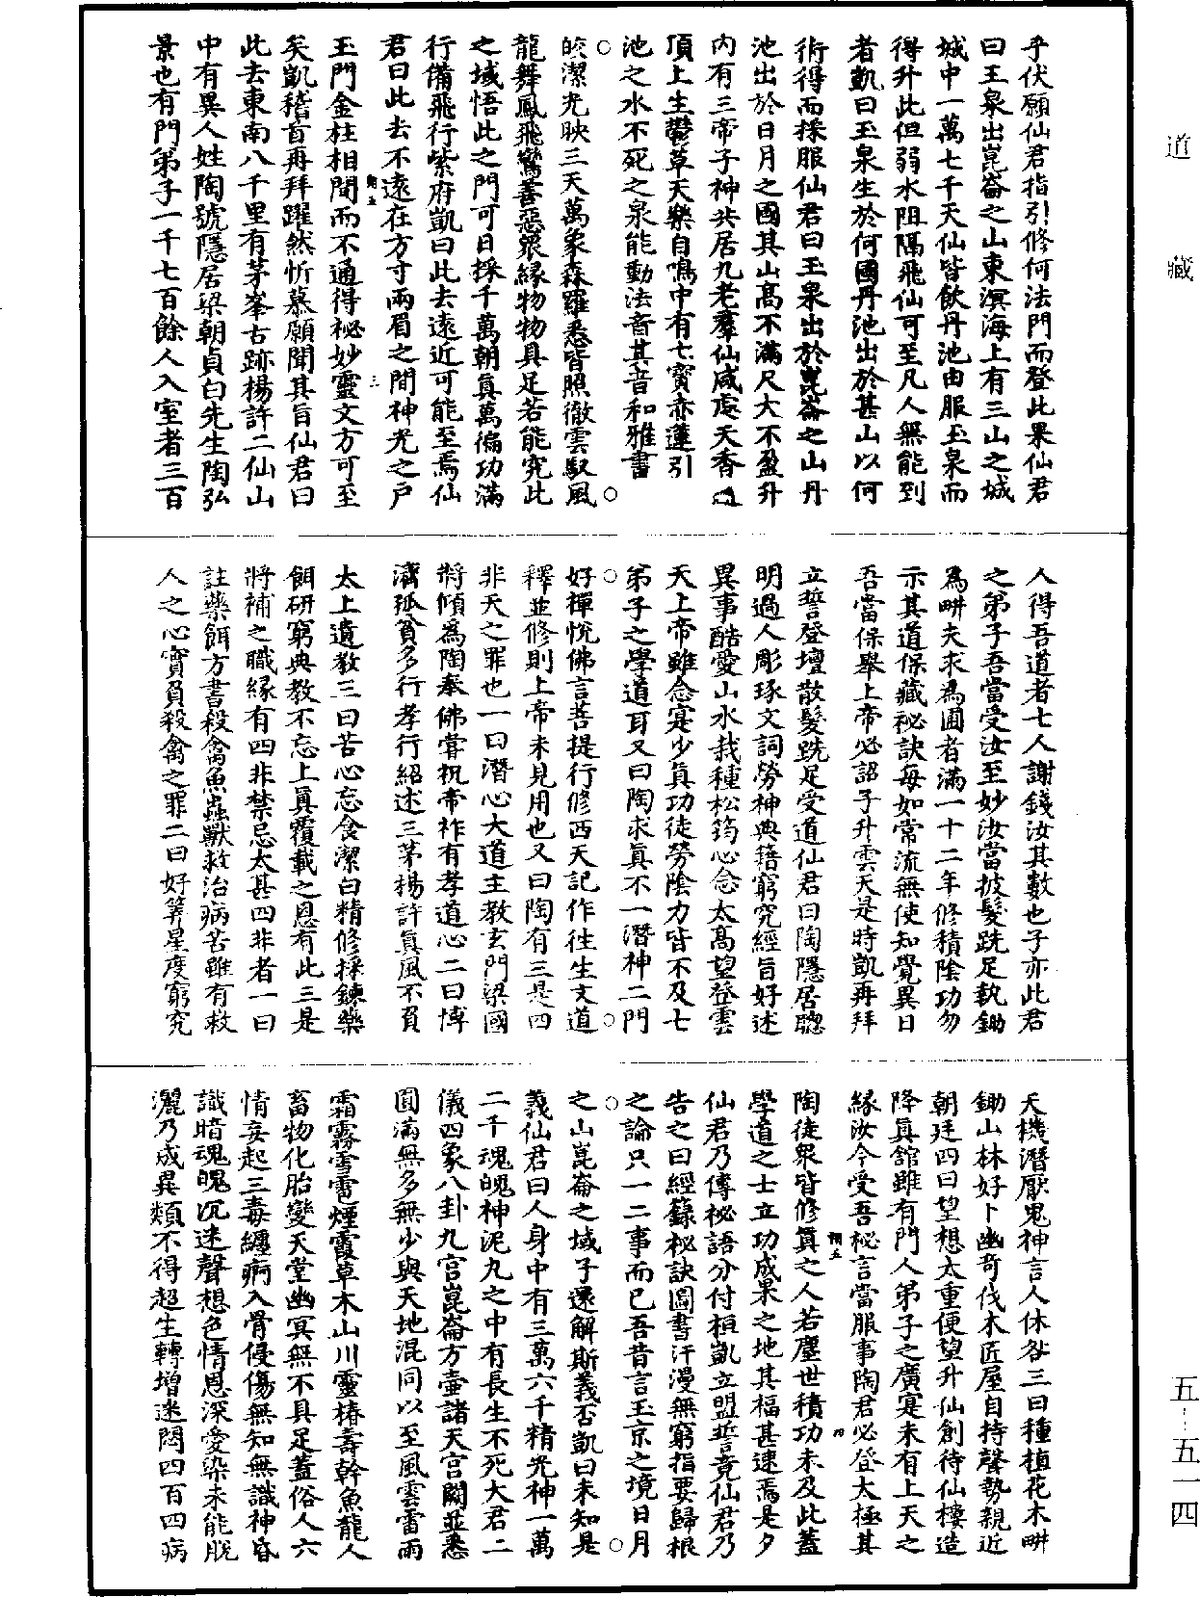 道藏
五-五一四
乎伏願仙君指引修何法門而登此果仙君
曰玉泉出崑崙之山東溟海上有三山之城
城中一萬七千天仙皆飲丹池由服玉泉而
得升此但弱水阻隔飛仙可至凡人無能到
者凱曰玉泉生於何國丹池出於甚山以何
術得而採服仙君曰玉泉出於崑崙之山丹
池出於日月之國其山高不滿尺大不盈升
內有三帝子神共居九老羣仙咸處天香
頂上生鬱草天樂自鳴中有七寶赤蓮引
池之水不死之泉能動法音其音和雅書
○
皎潔光映三天萬象森羅悉皆照徹雲馭風
龍舞鳳飛鸞善惡眾緣物物具足若能究此
之域悟此之門可日採千萬朝真萬徧功滿
行備飛行紫府凱曰此去遠近可能至焉仙
君曰此去不遠在方寸兩眉之間神光之戶
三
玉門金柱相間而不通得祕妙靈文方可至
矣凱稽首再拜躍然忻慕願聞其旨仙君曰
此去東南八千里有茅峯古跡楊許二仙山
中有異人姓陶號隱居梁朝貞白先生陶弘
景也有門弟子一千七百餘人入室者三百
人得吾道者七人謝錢汝其數也子亦此君
之弟子吾當受汝至妙汝當披髮跣足執鋤
為畊夫求為圃者滿一十二年修積陰功勿
示其道保藏祕訣每如常流無使知覺異日
吾當保舉上帝必詔子升雲天是時凱再拜
立誓登壇散髮跣足受道仙君曰陶隱居聰
明過人彫琢文詞勞神典籍窮究經旨好述
異事酷愛山水栽種松筠心念太高望登雲
天上帝雖念寔少真功徒勞陰力皆不及七
弟子之學道耳又曰陶求真不一潛神二門
○
好禪悅佛言菩提行修西天記作往生文道
釋並修則上帝未見用也又曰陶有三是四
非天之罪也一曰潛心大道主教玄門梁國
將傾為陶奉佛嘗祝帝祚有孝道心二曰博
濟孤貧多行孝行紹述三茅楊許真風不負
太上遺教三曰苦心忘食潔白精修採鍊藥
餌研窮典教不忘上真覆載之恩有此三是
將補之職緣有四非禁忌太甚四非者一曰
註藥餌方書殺禽魚蟲獸救治病苦雖有救
人之心實負殺禽之罪二曰好筭星度窮究
天機潛厭鬼神言人休咎三曰種植花木畊
鋤山林好卜幽奇伐木匠屋自持聲勢親近
朝廷四曰望想太重便望升仙創待仙樓造
降真館雖有門人弟子之廣寔未有上天之
緣汝今受吾祕言當服事陶君必登太極其
陶徒眾皆修真之人若塵世積功未及此蓋
四
學道之士立功成果之地其福甚速焉是夕
仙君乃傳祕語分付桓凱立盟誓竟仙君乃
告之曰經籙祕訣圖書汗漫無窮指要歸根
之論只一二事而已吾昔言玉京之境日月
○
之山崑崙之域子還解斯義否凱曰未知是
義仙君曰人身中有三萬六千精光神一萬
二千魂魄神泥九之中有長生不死大君二
儀四象八卦九宮崑崙方壺諸天宮闕並悉
圓滿無多無少與天地混同以至風雲雷雨
霜霧雪雹煙霞草木山川靈椿壽幹魚龍人
畜物化胎變天堂幽冥無不具足蓋俗人六
情妄起三毒纏痾入骨侵傷無知無識神昏
識暗魂魄沉迷聲想色情恩深愛染未能脫
灑乃成異類不得超生轉增迷悶四百四病